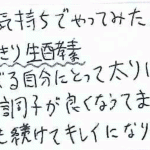 気持ちでやってみた
きり生酵素
る自分にとって太り
調子が良くなってま
続けてキレイにな